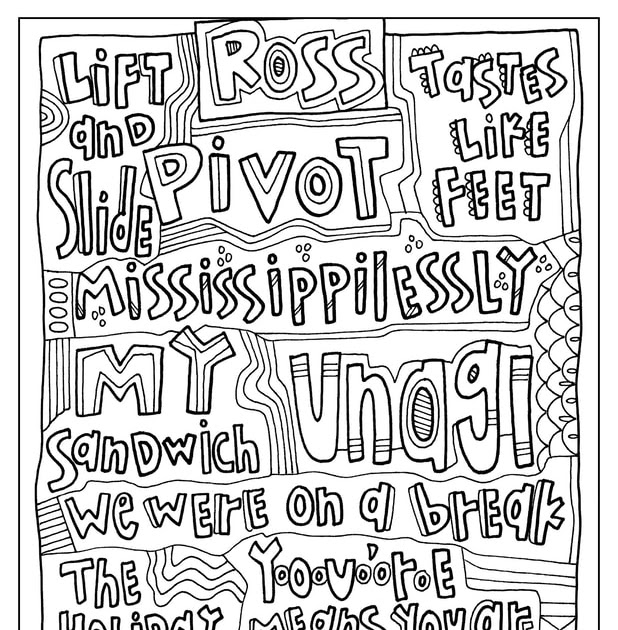 Ross
LiFT
anD
Slide
PivoT
TasTES
LiKE
FEET
MississippilESSLY
MY
Sandwich
Unagi
we were on a break
THE
HOLiDAY
Y'oo'u'o'r'o'E
MEans You are